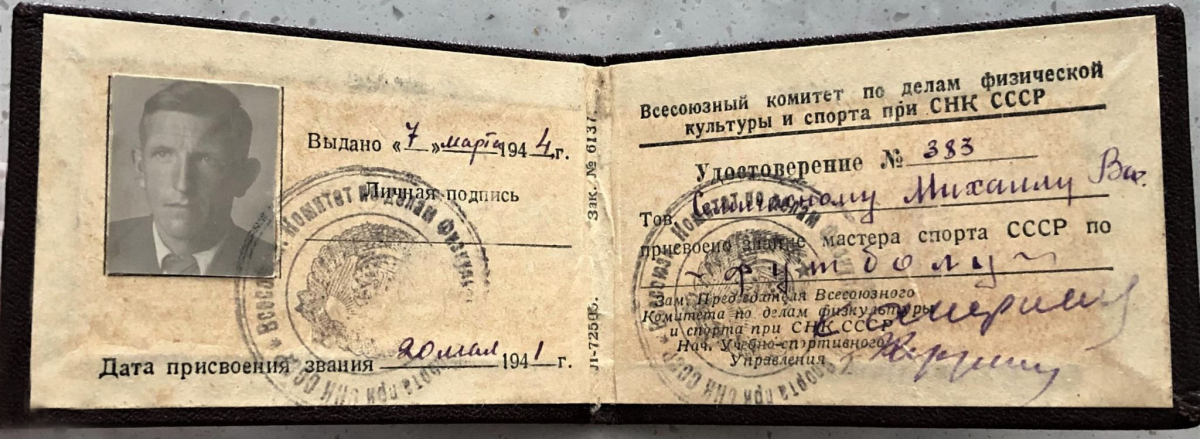 Выдано «7» марта 1944 г.
Личная подпись
Дата присвоения звания 20 мая 1941 г.
Зак. № 6137
Л-72505.
Всесоюзный комитет по делам физической
культуры и спорта при СНК СССР
Удостоверение № 383
Тов. Михаилу Вас.
присвоено звание мастера спорта СССР по
футболу
Зам. Председателя Всесоюзного
Комитета по делам физкультуры
и спорта при СНК СССР
Нач. Учебно-спортивного
Управления